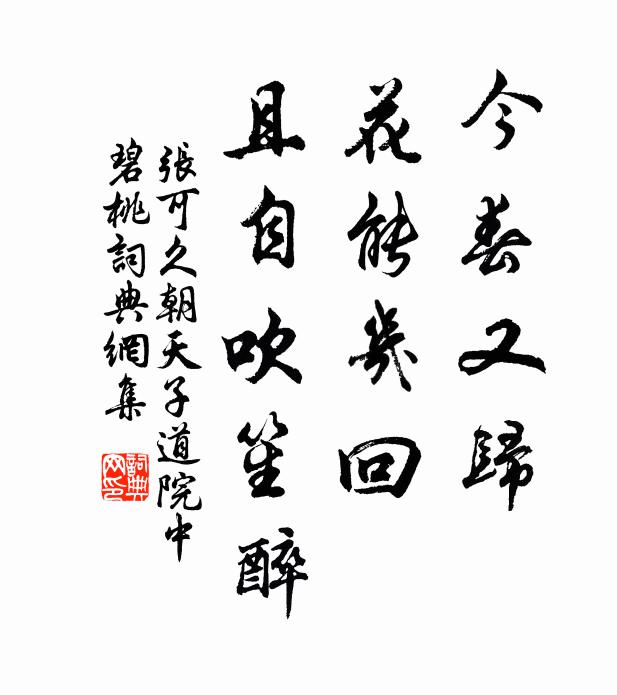 今春又歸
花能幾回
且自吹笙醉
張可久朝天子道院中
碧桃詞典網集
詞典网印